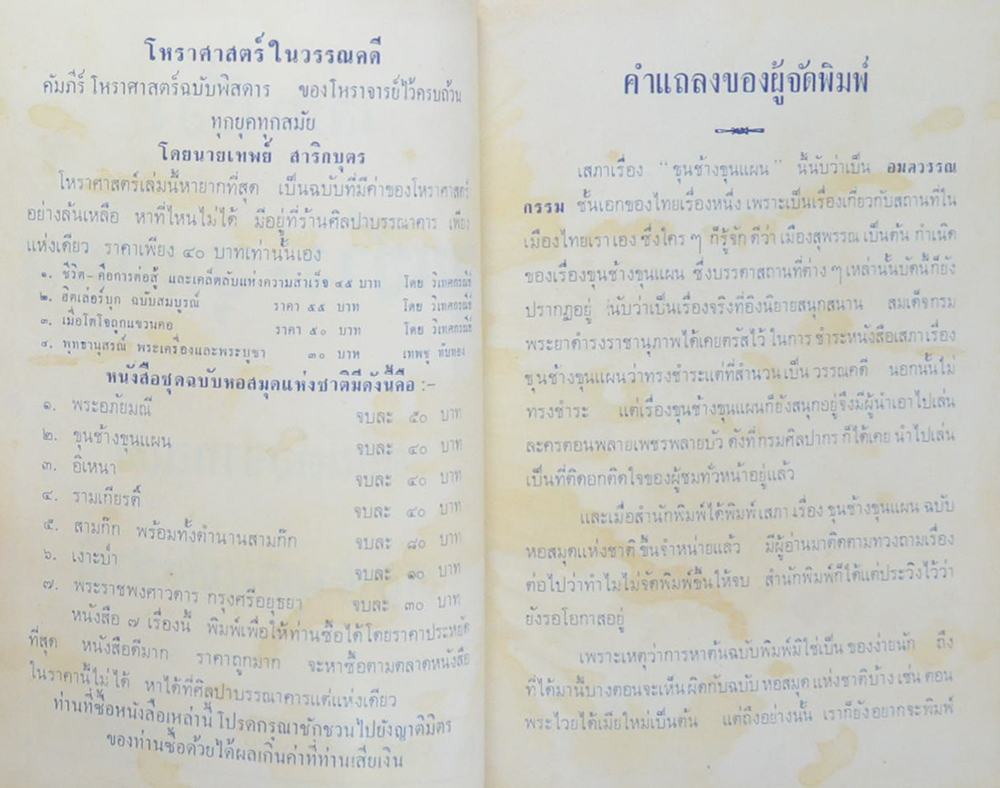 โหราศาสตร์ในวรรณคดี
คัมภีร์ โหราศาสตร์ฉบับพิสดาร ของโหราจารย์ไว้ครบถ้วน
ทุกยุคทุกสมัย
โดยนายเทพย์ สาริกบุตร
โหราศาสตร์เล่มนี้หายากที่สุด เป็นฉบับที่มีค่าของโหราศาสตร์
อย่างล้นเหลือ หาที่ไหนไม่ได้ มีอยู่ที่ร้านศิลปาบรรณาคาร เพียง
แห่งเดียว ราคาเพียง ๔๐ บาทเท่านั้นเอง
๑. ชีวิต-คือการต่อสู้ และเคล็ดลับแห่งความสำเร็จ ๔๕ บาท โดย วิเทศกรณีย์
๒. ฮิตเล่อร์บุก ฉบับสมบูรณ์ ราคา ๕๕ บาท โดย วิเทศกรณีย์
๓. เมื่อโตโจถูกแขวนคอ ราคา ๕๐ บาท โดย วิเทศกรณีย์
๔. พุทธานุสรณ์ พระเครื่องและพระบูชา ๓๐ บาท เทพชู ทับทอง
หนังสือชุดฉบับหอสมุดแห่งชาติมีดังนี้คือ :-
๑. พระอภัยมณี จบละ ๕๐ บาท
๒. ขุนช้างขุนแผน จบละ ๔๐ บาท
๓. อิเหนา จบละ ๔๐ บาท
๔. รามเกียรติ์ จบละ ๔๐ บาท
๕. สามก๊ก พร้อมทั้งตำนานสามก๊ก จบละ ๘๐ บาท
๖. เงาะป่า จบละ ๑๐ บาท
๗. พระราชพงศาวดาร กรุงศรีอยุธยา จบละ ๓๐ บาท
หนังสือ ๗ เรื่องนี้ พิมพ์เพื่อให้ท่านซื้อได้โดยราคาประหยัด
ที่สุด หนังสือดีมาก ราคาถูกมาก จะหาซื้อตามตลาดหนังสือ
ในราคานี้ไม่ได้ หาได้ที่ศิลปาบรรณาคารแต่แห่งเดียว
ท่านที่ซื้อหนังสือเหล่านี้ โปรดกรุณาชักชวนไปยังญาติมิตร
ของท่านซื้อด้วยได้ผลเกินค่าที่ท่านเสียเงิน
คำแถลงของผู้จัดพิมพ์
เสภาเรื่อง "ขุนช้างขุนแผน" นี้นับว่าเป็น อมตวรรณ
กรรม ชั้นเอกของไทยเรื่องหนึ่ง เพราะเป็นเรื่องเกี่ยวกับสถานที่ใน
เมืองไทยเราเอง ซึ่งใคร ๆ ก็รู้จัก ดีว่า เมืองสุพรรณ เป็นต้น กำเนิด
ของเรื่องขุนช้างขุนแผน ซึ่งบรรดาสถานที่ต่าง ๆ เหล่านั้นบัดนี้ก็ยัง
ปรากฏอยู่ นับว่าเป็นเรื่องจริงที่อิงนิยายสนุกสนาน สมเด็จกรม
พระยาดำรงราชานุภาพได้เคยตรัสไว้ ในการ ชำระหนังสือเสภาเรื่อง
ขุนช้างขุนแผนว่าทรงชำระแต่ที่สำนวน เป็น วรรณคดี นอกนั้นไม่
ทรงชำระ แต่เรื่องขุนช้างขุนแผนก็ยังสนุกอยู่จึงมีผู้นำเอาไปเล่น
ละครตอนพลายเพชรพลายบัว ดังที่กรมศิลปากร ก็ได้เคย นำไปเล่น
เป็นที่ติดอกติดใจของผู้ชมทั่วหน้าอยู่แล้ว
และเมื่อสำนักพิมพ์ได้พิมพ์เสภา เรื่อง ขุนช้างขุนแผน ฉบับ
หอสมุดแห่งชาติ ขึ้นจำหน่ายแล้ว มีผู้อ่านมาติดตามทวงถามเรื่อง
ต่อไปว่าทำไมไม่จัดพิมพ์ขึ้นให้จบ สำนักพิมพ์ก็ได้แต่ประวิงไว้ว่า
ยังรอโอกาสอยู่
เพราะเหตุว่าการหาต้นฉบับพิมพ์มิใช่เป็น ของง่ายนัก ถึง
ที่ได้มานี้บางตอนจะเห็น ผิดกับฉบับ หอสมุด แห่งชาติบ้าง เช่น ตอน
พระไวยได้เมียใหม่เป็นต้น แต่ถึงอย่างนั้น เราก็ยังอยากจะพิมพ์